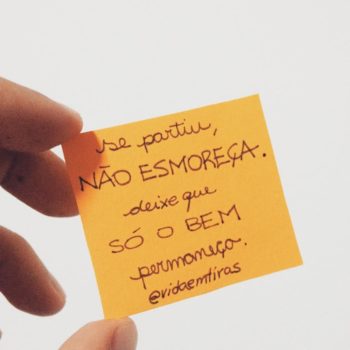 se partiu,
NÃO ESMOREÇA.
deixe que
SÓ O BEM
permaneça.
@vidaemtiras